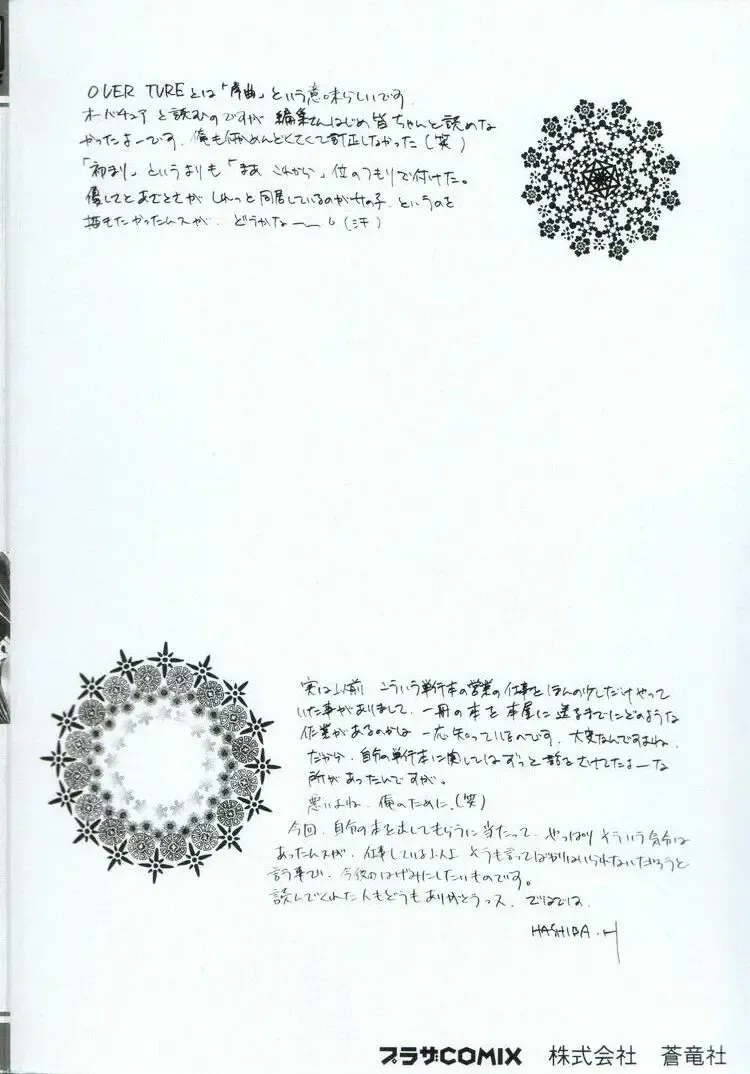 OVER TUREとは「序曲」という意味らしいです。
オーバチュアと読むのですが編集さんはじめ皆ちゃんと読めな
かったよーです。俺も何かめんどくさくて訂正しなかった（笑）
「初まり」というよりも「まあ これから」位のつもりで付けた。
しれっと同居しているのが女の子、というのを
描きたかったんスが、どうかなー（汗）
実は以前 こういう単行本の営業の仕事をほんの少しだけやって
いた事がありまして、一冊の本を本屋に送るまでにどのような
作業があるのかは 一応知っているのです。大変なんですよね。
だから、自分の単行本に関してはずっと 避けてたよーな
所があったんですが。
悪いよね、俺のために。（笑）
今回、自分の本を出してもらうに当たって、やっぱり そういう気分は
あったんスが、仕事している以上 そうも言ってばかりはいられないだろうと
言う事で、今後のはげみにしたいものです。
読んでくれた人もどうもありがとうっス、ではでは。
HASHIBA.H
プラザCOMIX 株式会社 蒼竜社